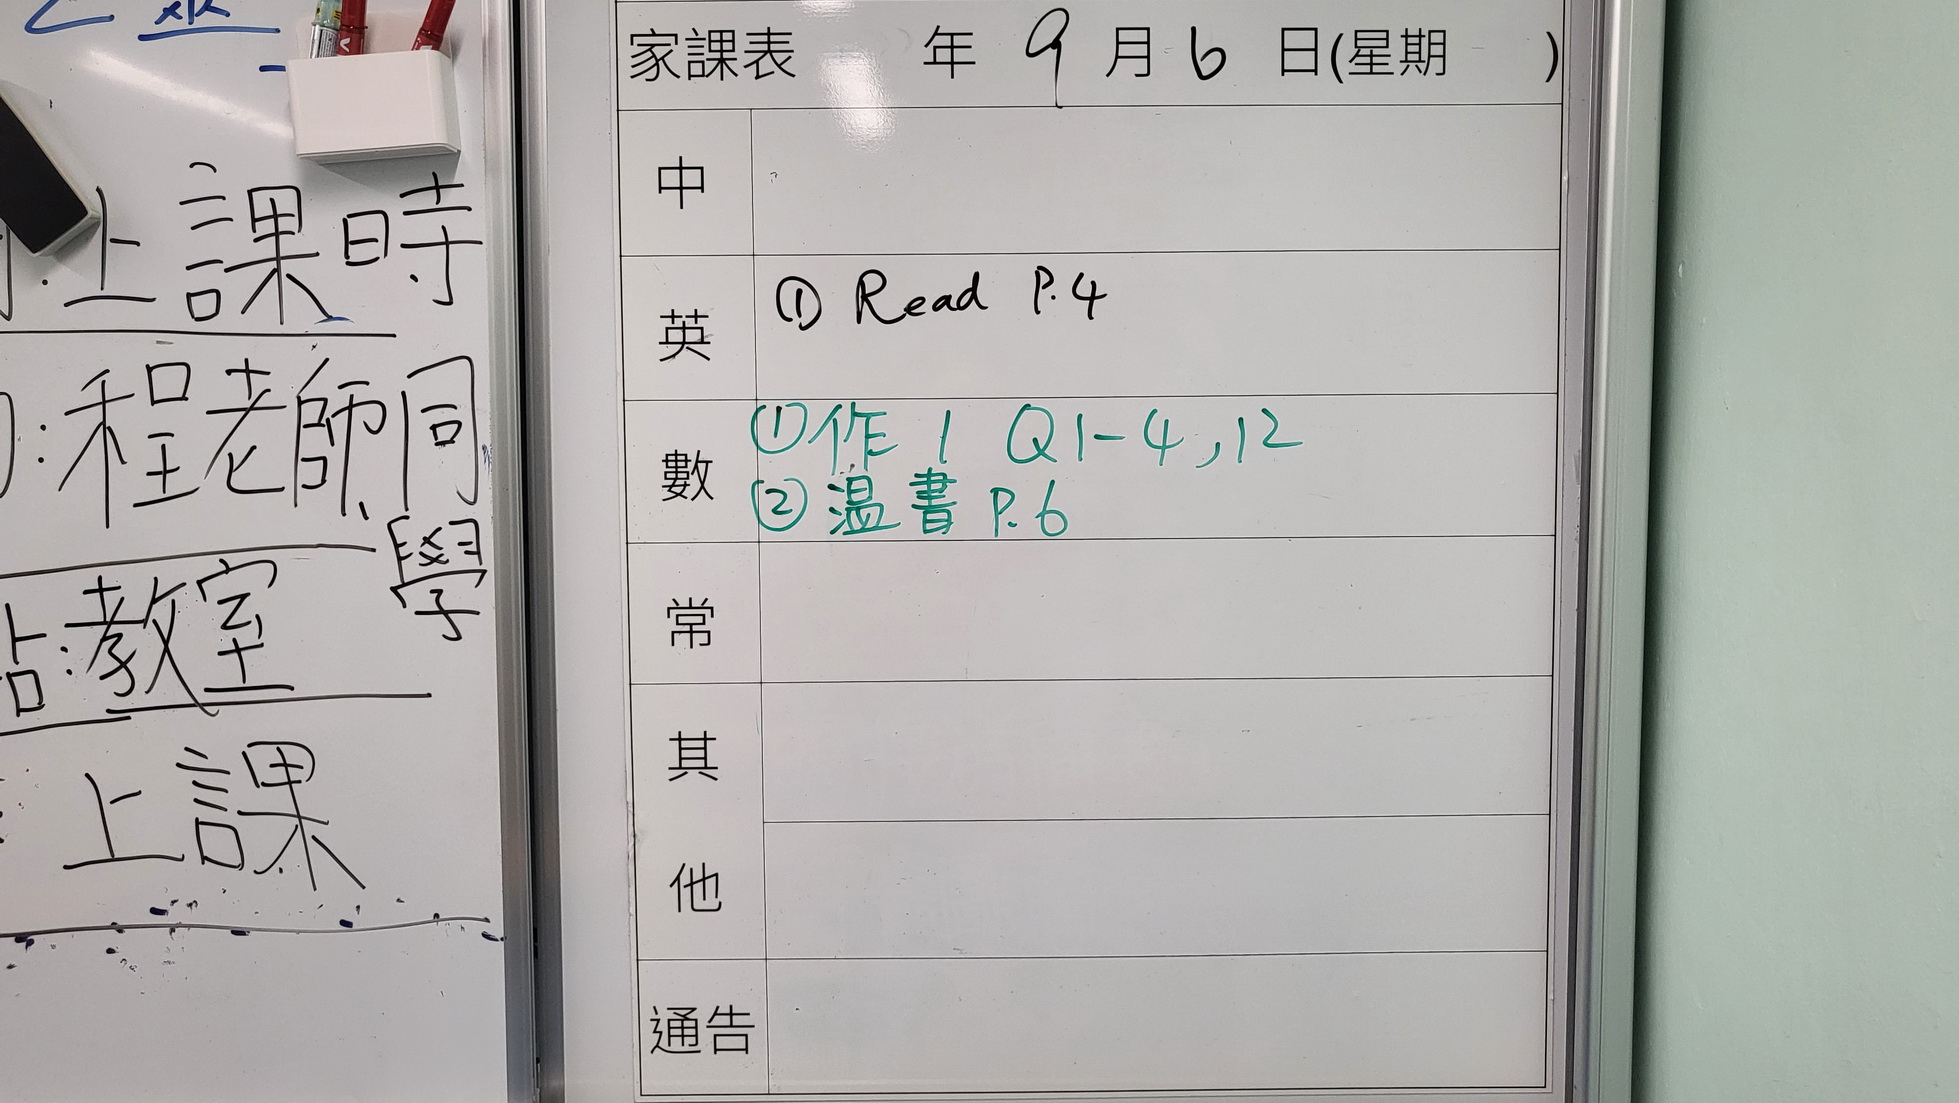 上課時
程老師同
學
教室
上課
家課表 年 9 月 6 日(星期 )
中
英 ① Read P.4
數 ① 作 1 Q1-4, 12
② 溫書 P.6
常
其
他
通告